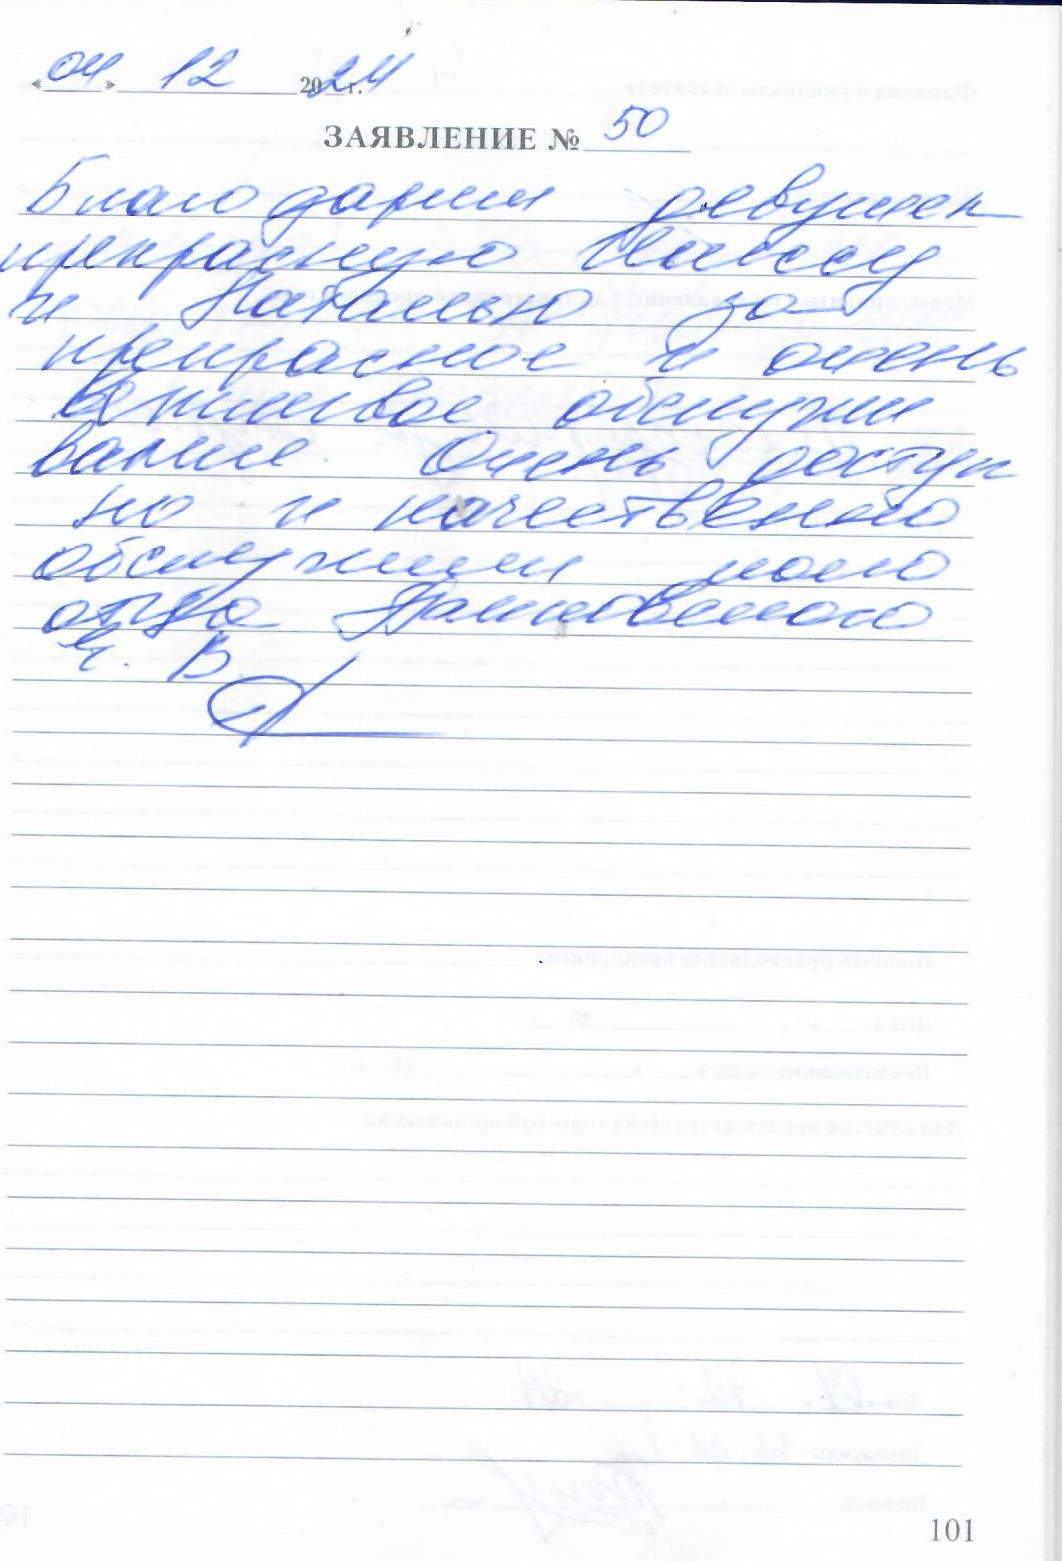 «04» 12 2024 г.
ЗАЯВЛЕНИЕ № 50
Благодарим девушек
прекрасную
и Наталью за
прекрасное и очень
вежливое обслужи
вание. Очень доступ
но и качественно
обслужили моего
отца
В.
101